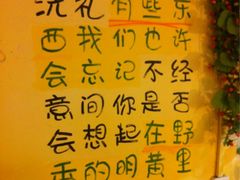 洗礼有些东
西我们也许
会忘记不经
意间你是否
会想起在野
香的明黄里